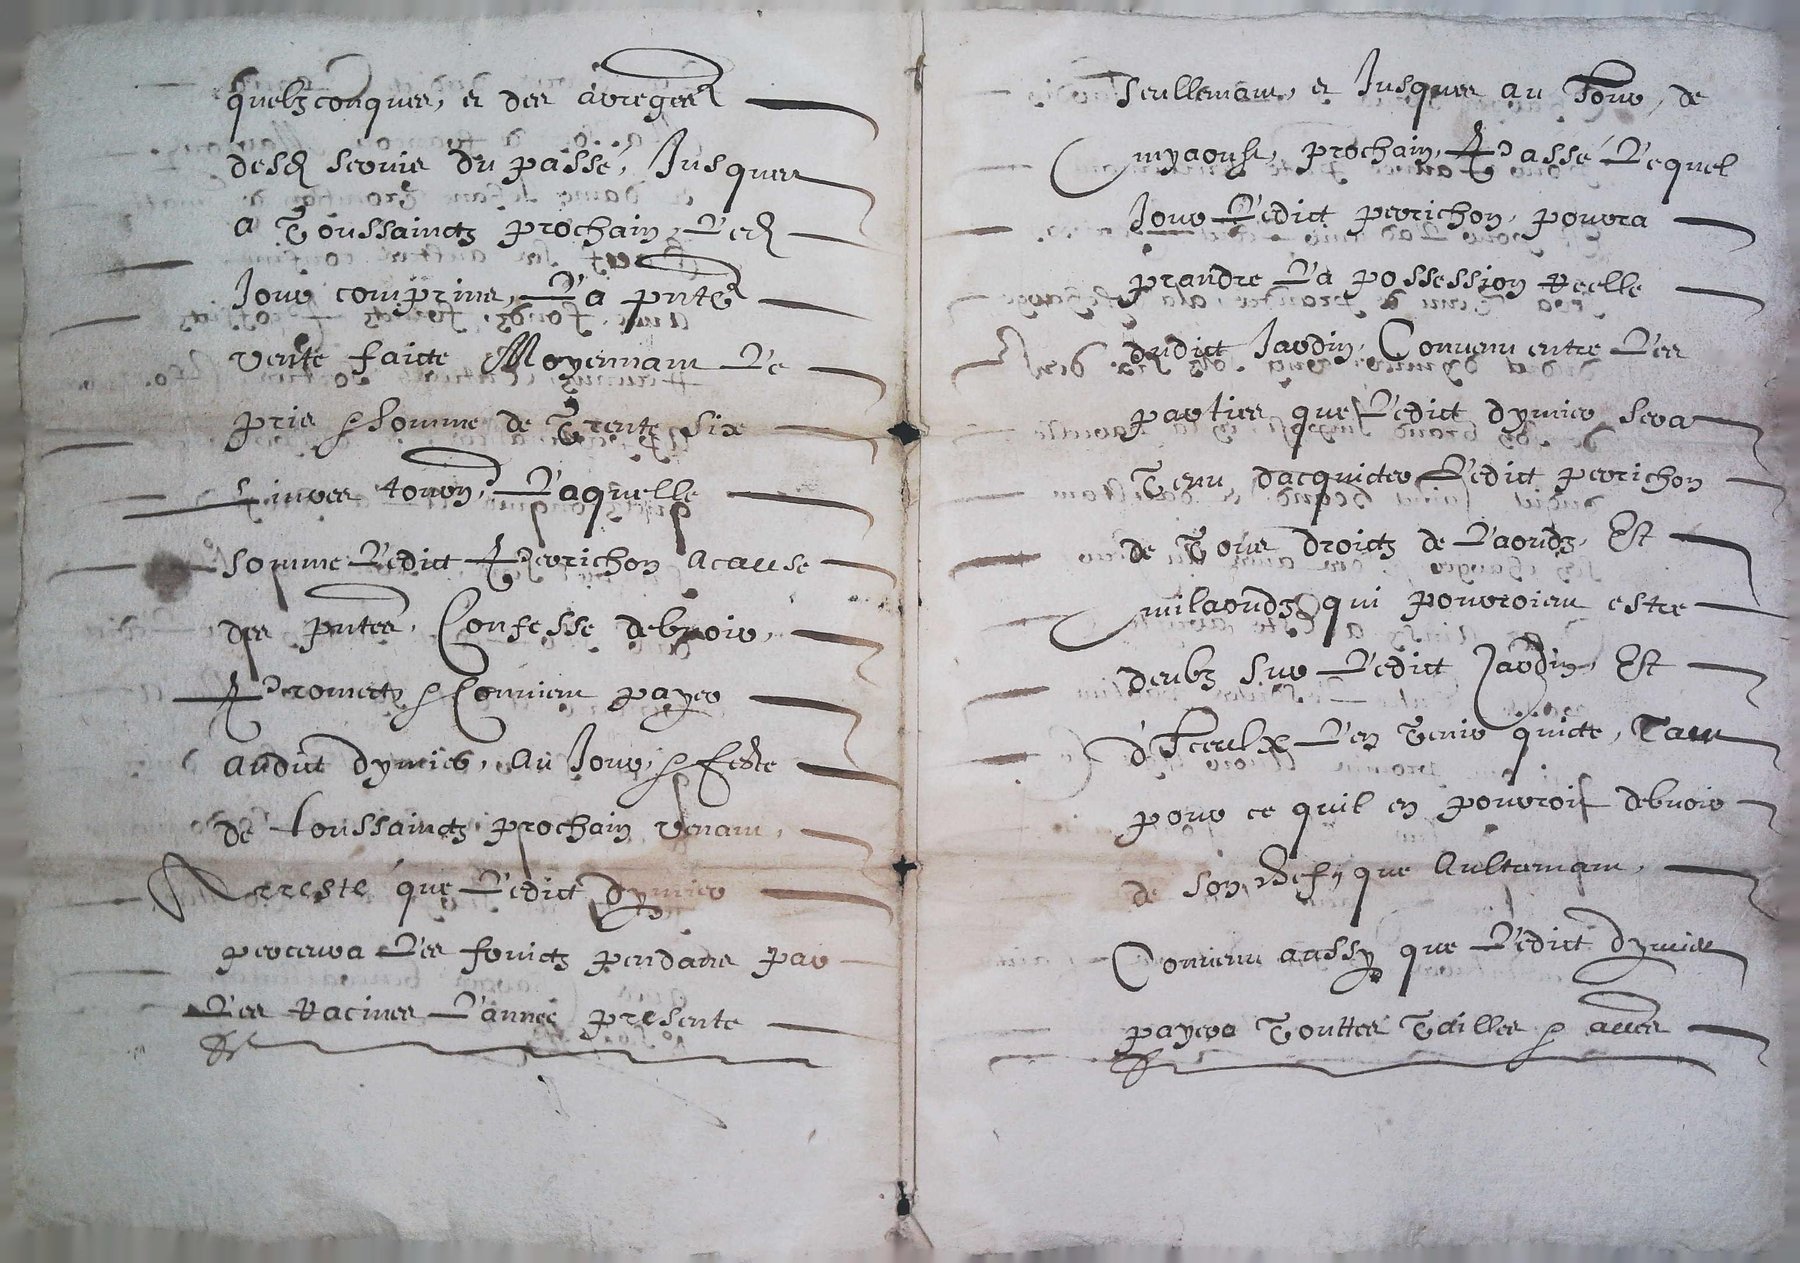 quelzconques, et des arreges
desd servis du passé, Jusques
a Toussainctz prochain, Led
Jour comprins, La pnte
vente faicte Moyennant Le
pris & somme de Trente six
Livres tourn, Laquelle
somme Ledict Perrichon acause
des pntes, Confesse debvoir,
Promect & Convient payer
audict dymier, au Jour, & feste
de toussainctz prochain venant,
Arresté que Ledict dymier
percevra Les fruictz pendans par
Les Racines L'année presente
Seullemant, et Jusques au Jour, de
myaoust, prochain, Passé Lequel
Jour Ledict perrichon, pourra
prandre La possession Reelle
dudict Jardin, Convenu entre Les
parties que Ledict dymier sera
Tenu dacquicter Ledict perrichon
de Tous droictz de Laoudz, Et
milaoudz qui pourroient estre
deubz sur Ledict Jardin, Et
d'Iceulx Len Tenir quicte, Tant
pour ce quil en pourroit debvoir
de son chef, que Aultremant,
Convenu aussy que Ledict dymier
payera Touttes Tailles & aues